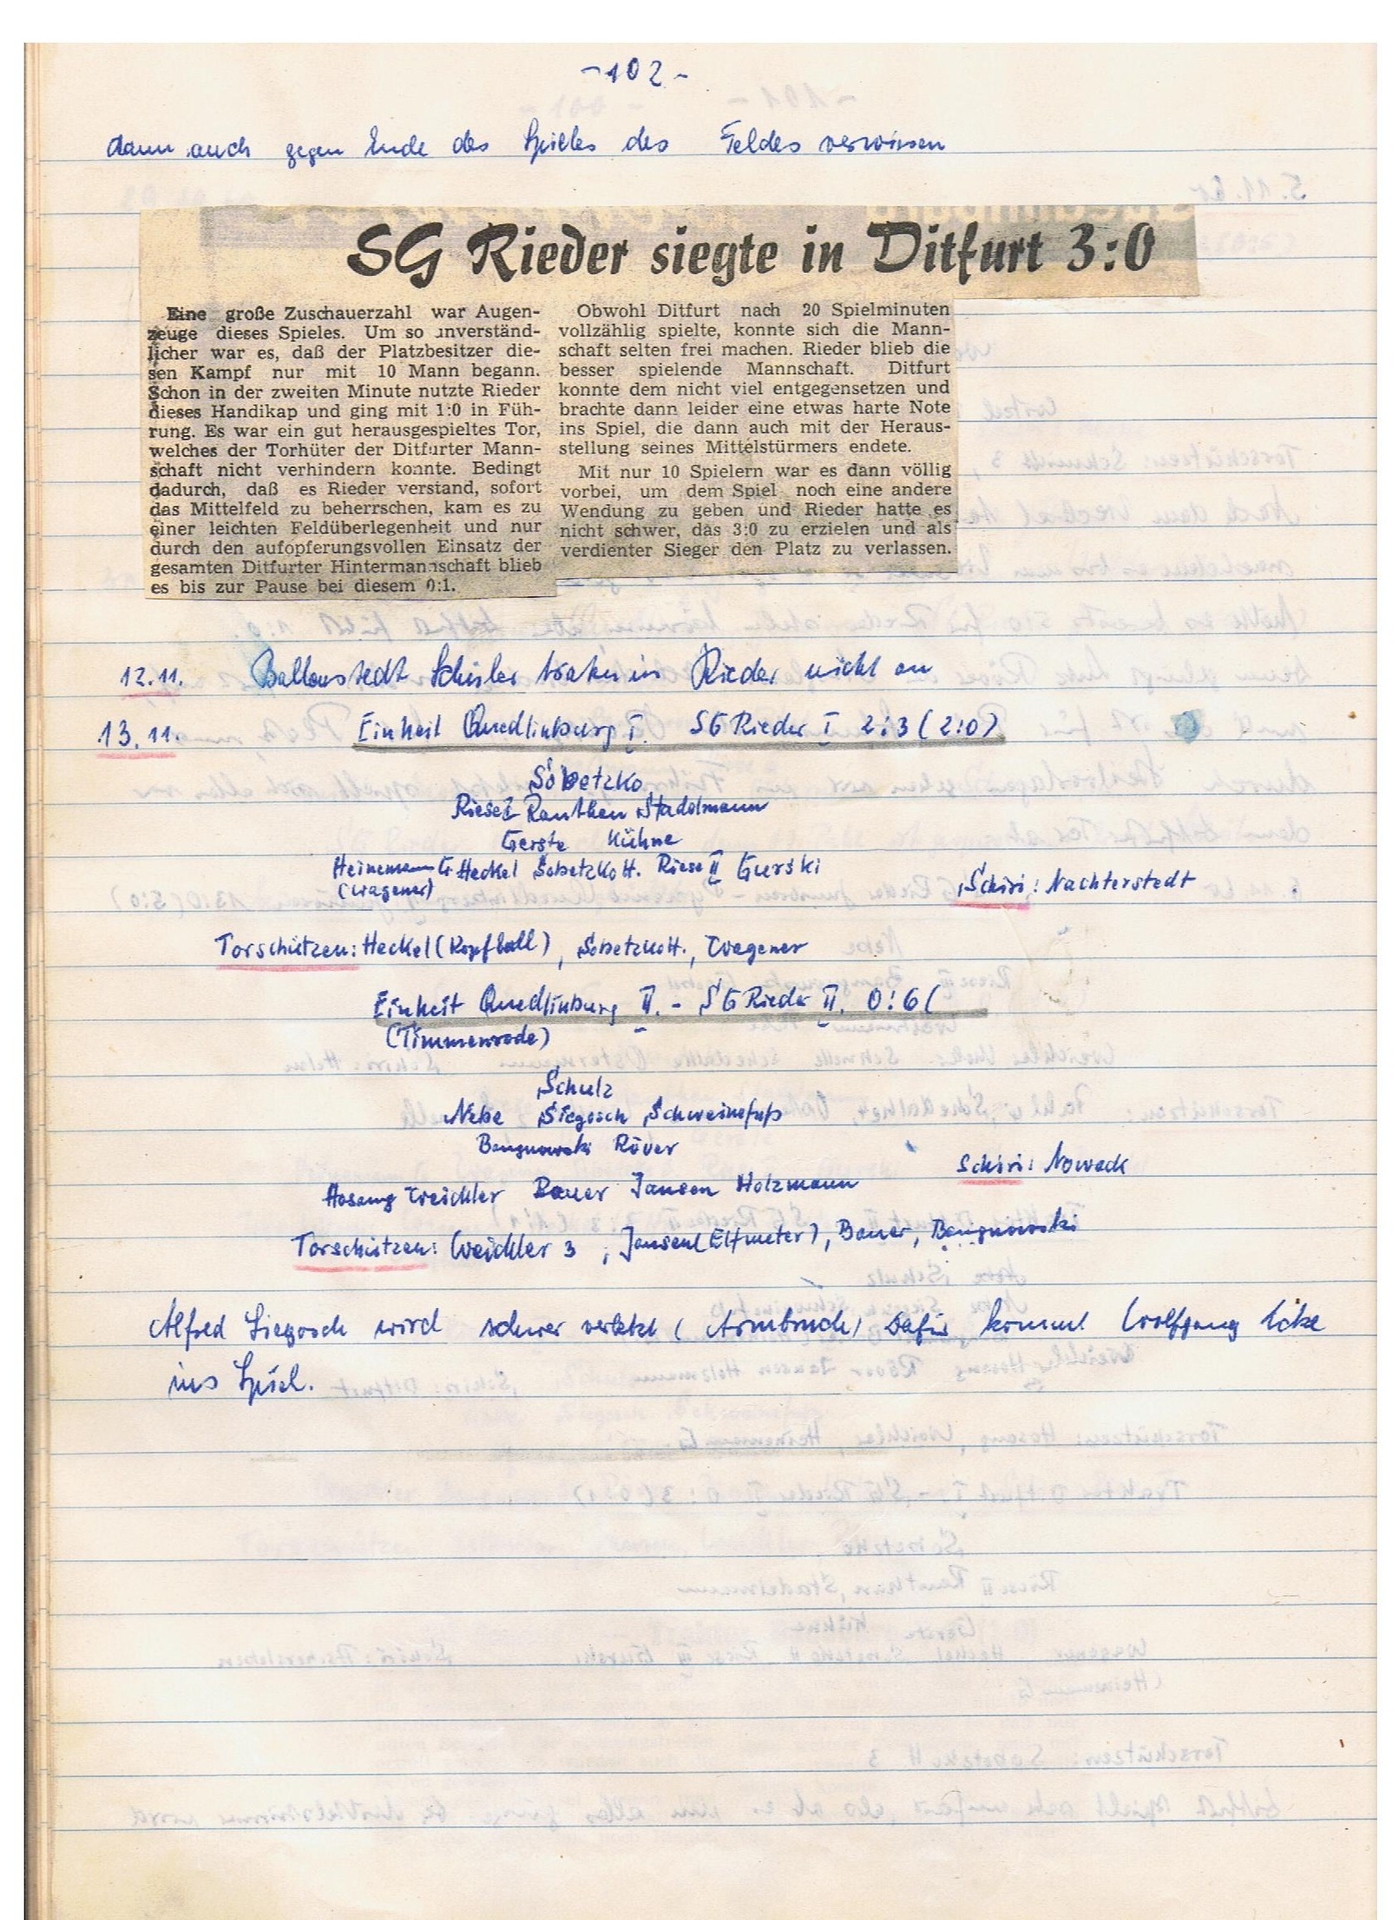 -102-
dann auch gegen Ende des Spieles des Feldes verwiesen
SG Rieder siegte in Ditfurt 3:0
Eine große Zuschauerzahl war Augen-
zeuge dieses Spieles. Um so unverständ-
licher war es, daß der Platzbesitzer die-
sen Kampf nur mit 10 Mann begann.
Schon in der zweiten Minute nutzte Rieder
dieses Handikap und ging mit 1:0 in Füh-
rung. Es war ein gut herausgespieltes Tor,
welches der Torhüter der Ditfurter Mann-
schaft nicht verhindern konnte. Bedingt
dadurch, daß es Rieder verstand, sofort
das Mittelfeld zu beherrschen, kam es zu
einer leichten Feldüberlegenheit und nur
durch den aufopferungsvollen Einsatz der
gesamten Ditfurter Hintermannschaft blieb
es bis zur Pause bei diesem 0:1.
Obwohl Ditfurt nach 20 Spielminuten
vollzählig spielte, konnte sich die Mann-
schaft selten frei machen. Rieder blieb die
besser spielende Mannschaft. Ditfurt
konnte dem nicht viel entgegensetzen und
brachte dann leider eine etwas harte Note
ins Spiel, die dann auch mit der Heraus-
stellung seines Mittelstürmers endete.
Mit nur 10 Spielern war es dann völlig
vorbei, um dem Spiel noch eine andere
Wendung zu geben und Rieder hatte es
nicht schwer, das 3:0 zu erzielen und als
verdienter Sieger den Platz zu verlassen.
12.11. Ballenstedt Schüler traten in Rieder nicht an
13.11. Einheit Quedlinburg I. SG Rieder I 2:3 (2:0)
Sobetzko
Riese I Rauthen Stadelmann
Gerste Kühne
Heinemann G Heckel Sobetzko H. Riese II Gurski
(Wagener)
Schiri: Nachterstedt
Torschützen: Heckel (Kopfball), Sobetzko H., Wagener
Einheit Quedlinburg II. - SG Rieder II. 0:6 (
(Timmenrode)
Schulz
Nebe Siegosch Schweinefuß
Bangnowski Röver
Schiri: Nowack
Hosang Weichler Bauer Jansen Holzmann
Torschützen: Weichler 3, Jansen (Elfmeter), Bauer, Bangnowski
Alfred Siegosch wird schwer verletzt (Armbruch) Dafür kommt Wolfgang Ecke
ins Spiel.